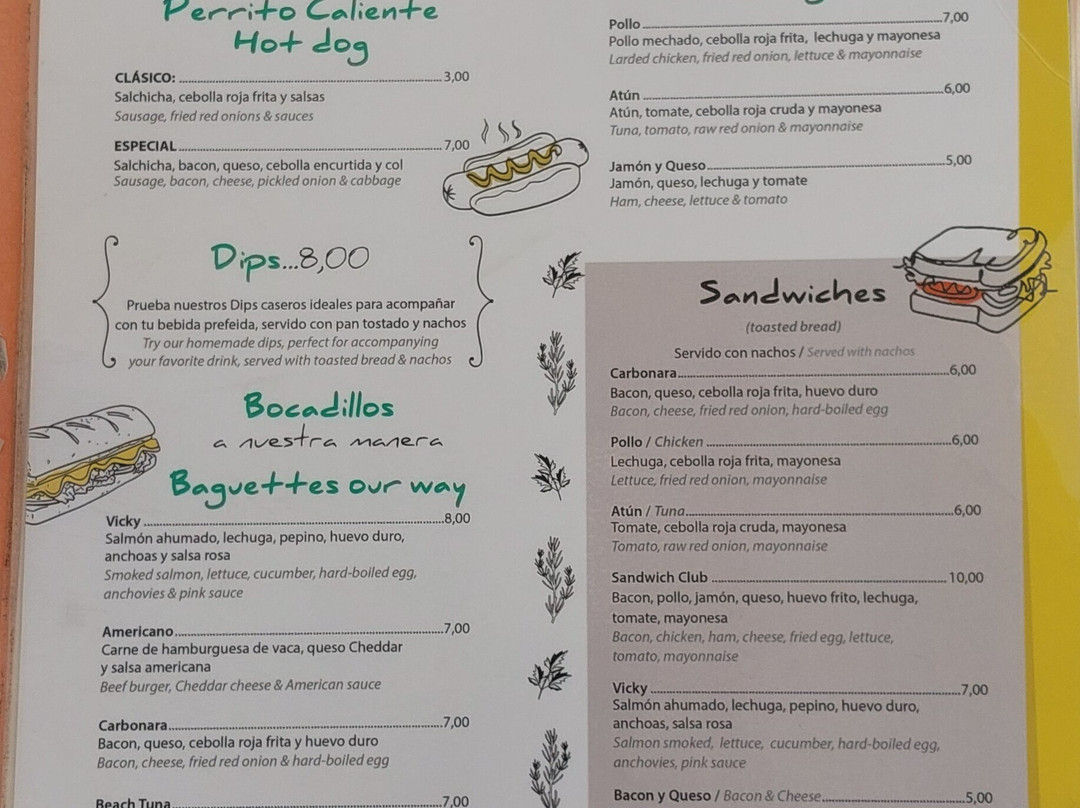 Perrito Caliente
Hot dog
CLÁSICO: 3,00
Salchicha, cebolla roja frita y salsas
Sausage, fried red onions & sauces
ESPECIAL 7,00
Salchicha, bacon, queso, cebolla encurtida y col
Sausage, bacon, cheese, pickled onion & cabbage
Dips...8,00
Prueba nuestros Dips caseros ideales para acompañar
con tu bebida prefeida, servido con pan tostado y nachos
Try our homemade dips, perfect for accompanying
your favorite drink, served with toasted bread & nachos
Bocadillos
a nuestra manera
Baguettes our way
Vicky 8,00
Salmón ahumado, lechuga, pepino, huevo duro,
anchoas y salsa rosa
Smoked salmon, lettuce, cucumber, hard-boiled egg,
anchovies & pink sauce
Americano 7,00
Carne de hamburguesa de vaca, queso Cheddar
y salsa americana
Beef burger, Cheddar cheese & American sauce
Carbonara 7,00
Bacon, queso, cebolla roja frita y huevo duro
Bacon, cheese, fried red onion & hard-boiled egg
Beach Tuna 7,00
Pollo 7,00
Pollo mechado, cebolla roja frita, lechuga y mayonesa
Larded chicken, fried red onion, lettuce & mayonnaise
Atún 6,00
Atún, tomate, cebolla roja cruda y mayonesa
Tuna, tomato, raw red onion & mayonnaise
Jamón y Queso 5,00
Jamón, queso, lechuga y tomate
Ham, cheese, lettuce & tomato
Sandwiches
(toasted bread)
Servido con nachos / Served with nachos
Carbonara 6,00
Bacon, queso, cebolla roja frita, huevo duro
Bacon, cheese, fried red onion, hard-boiled egg
Pollo / Chicken 6,00
Lechuga, cebolla roja frita, mayonesa
Lettuce, fried red onion, mayonnaise
Atún / Tuna 6,00
Tomate, cebolla roja cruda, mayonesa
Tomato, raw red onion, mayonnaise
Sandwich Club 10,00
Bacon, pollo, jamón, queso, huevo frito, lechuga,
tomate, mayonesa
Bacon, chicken, ham, cheese, fried egg, lettuce,
tomato, mayonnaise
Vicky 7,00
Salmón ahumado, lechuga, pepino, huevo duro,
anchoas, salsa rosa
Salmon smoked, lettuce, cucumber, hard-boiled egg,
anchovies, pink sauce
Bacon y Queso / Bacon & Cheese 5,00